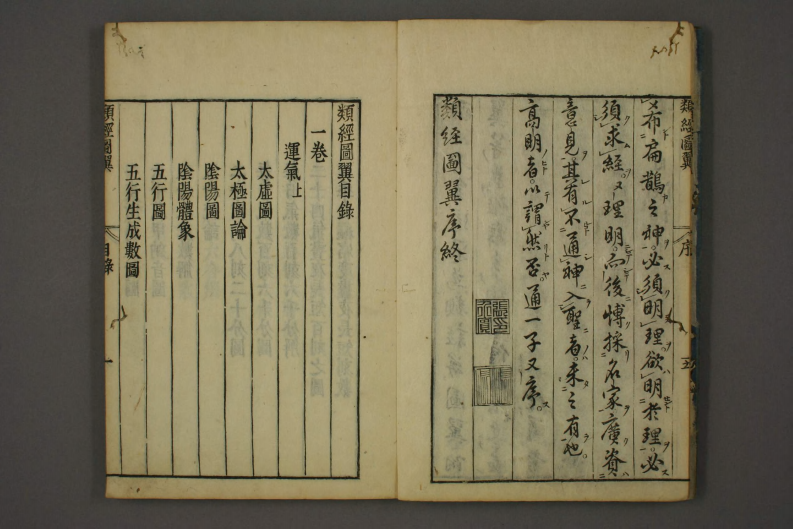 類經圖翼
序
五
布扁鵲之神必須明理欲明於理必
須求經經理明而後博採名家廣資
意見其有不通神入聖者未之有也
高明者以謂然否通一子又序
類經圖翼序終
類經圖翼目錄
一卷
運氣上
太虛圖
太極圖論
陰陽圖
陰陽體象
五行圖
五行生成數圖
類經圖翼
目錄
一